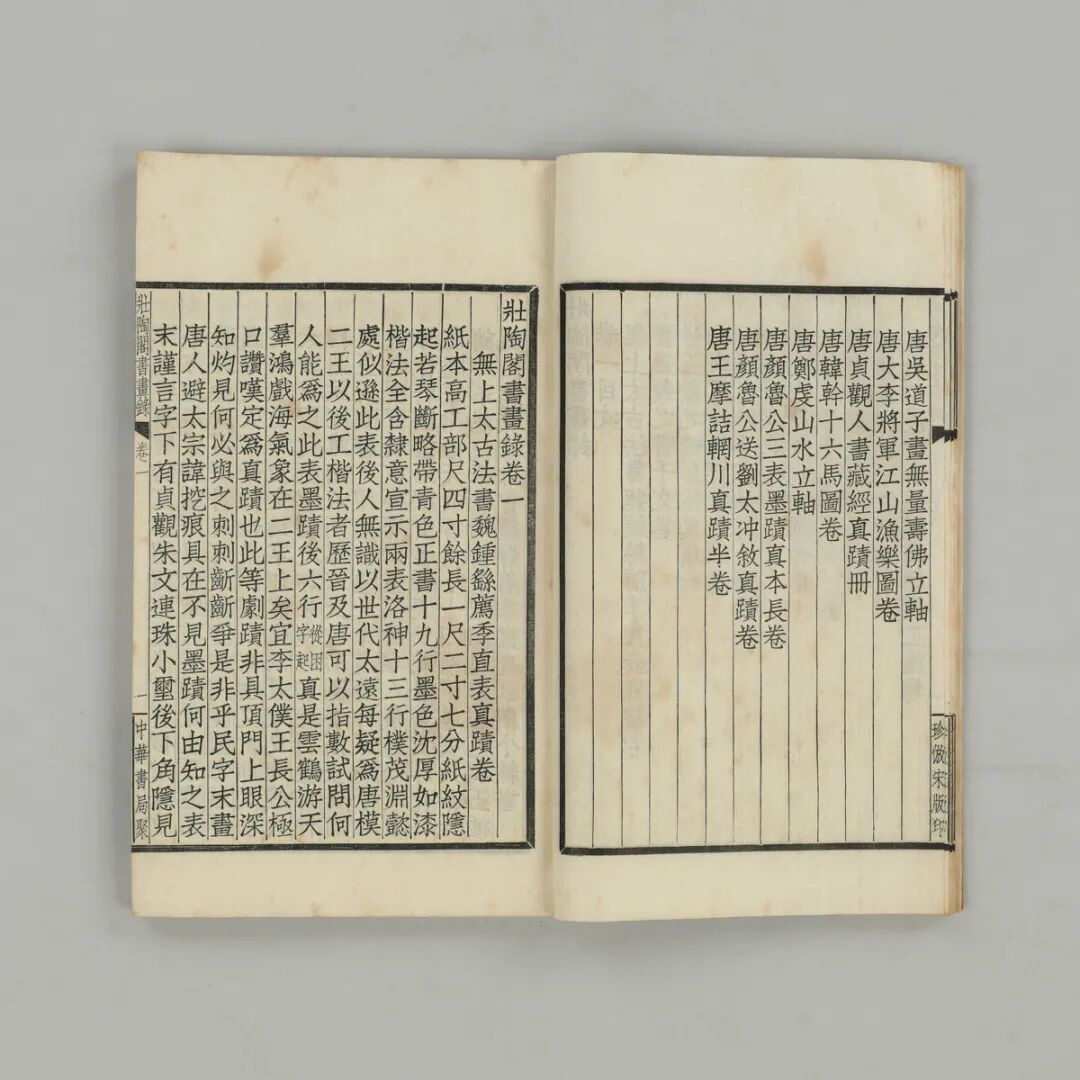 唐吳道子畫無量壽佛立軸
唐大李將軍江山漁樂圖卷
唐貞觀人書藏經真蹟冊
唐韓幹十六馬圖卷
唐鄭虔山水立軸
唐顏魯公三表墨蹟真本長卷
唐顏魯公送劉太冲敘真蹟卷
唐王摩詰輞川真蹟半卷
珍倣宋版印
壯陶閣書畫錄卷一
無上太古法書魏鍾繇薦季直表真蹟卷
紙本高工部尺四寸餘長一尺二寸七分紙紋隱
起若琴斷略帶青色正書十九行墨色沈厚如漆
楷法全含隸意宣示兩表洛神十三行樸茂淵懿
處似遜此表後人無識以世代太遠每疑為唐模
二王以後工楷法者歷晉及唐可以指數試問何
人能為之此表墨蹟後六行從困字起真是雲鶴游天
羣鴻戲海氣象在二王上矣宜李太僕王長公極
口讚嘆定為真蹟也此等劇蹟非具頂門上眼深
知灼見何必與之刺刺齗齗爭是非乎民字末畫
唐人避太宗諱挖痕具在不見墨蹟何由知之表
末謹言字下有貞觀朱文連珠小璽後下角隱見
壯陶閣書畫錄
卷一
一
中華書局聚